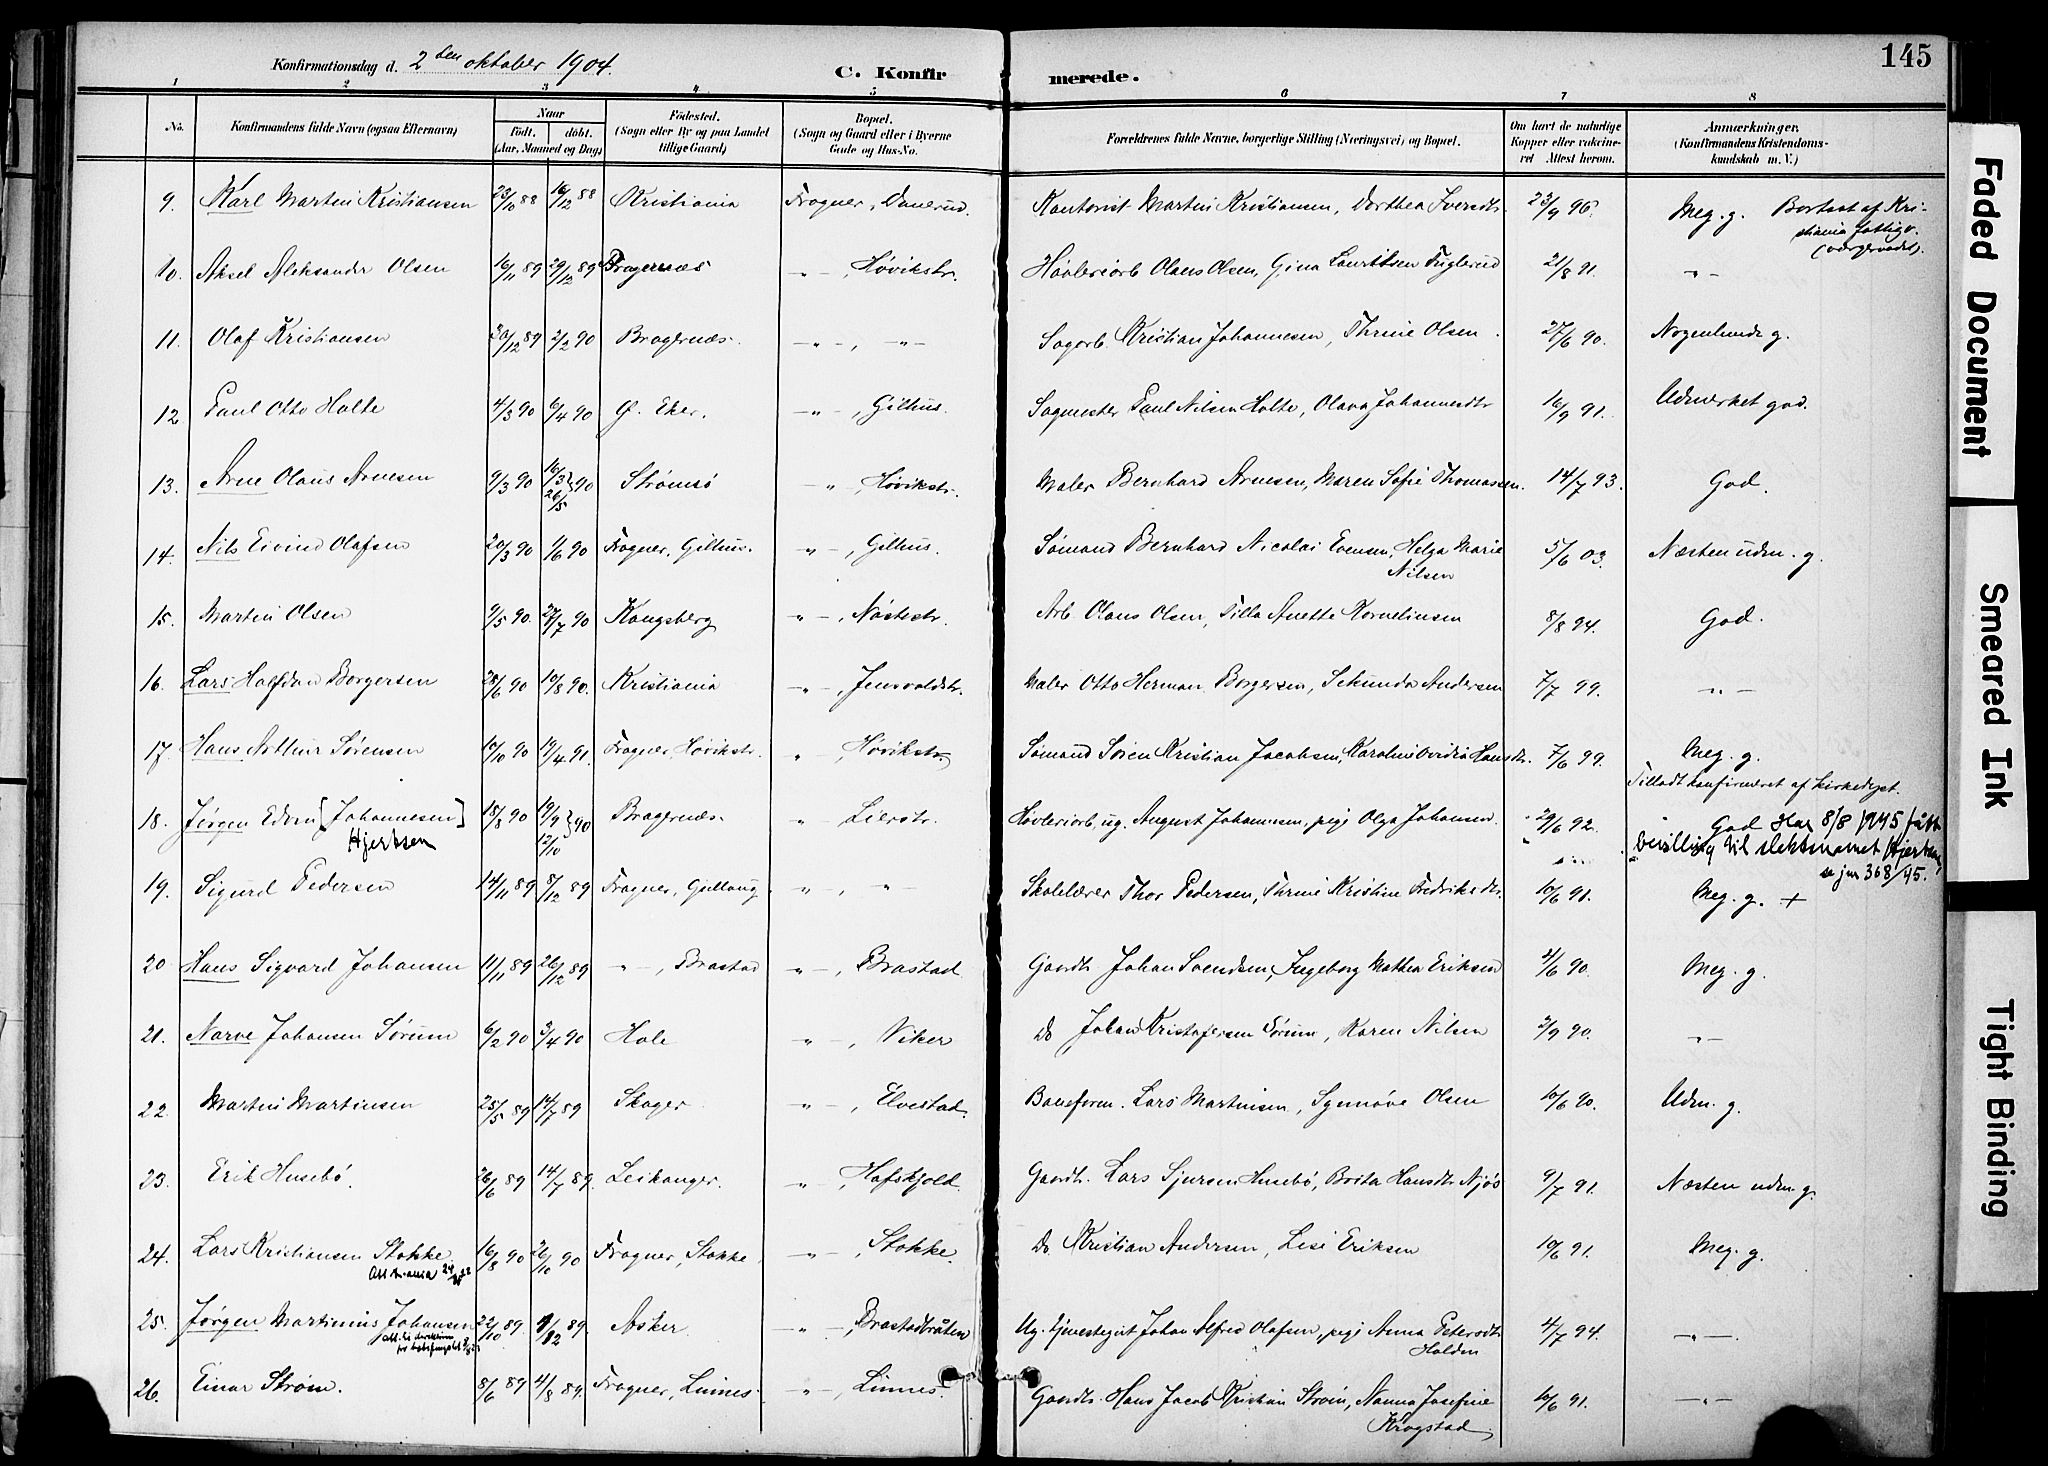 Konfirmationsdag d. 2den oktober 1904.
C. Konfirmerede.
145
1 2 3 4 5 6 7 8
No. Konfirmandens fulde Navn (ogsaa Efternavn) Naar født. døbt. (Aar, Maaned og Dag) Fødested. (Sogn eller By og paa Landet tillige Gaard) Bopæl. (Sogn og Gaard eller i Byerne Gade og Hus-No. Forældrenes fulde Navne, borgerlige Stilling (Næringsvei) og Bopæl. Om havt de naturlige Kopper eller vakcineret Attest herom. Anmærkninger. (Konfirmandens Kristendomskundskab m. V.)
9. Karl Martin Kristiansen 23/10 88 16/12 88 Kristiania Frogner, Danerud. Kantonist Martin Kristiansen, Dorthea Iversdtr. 23/9 96. Meg. g. Bortsat af Kristiania fattigv. (vergeraadet).
10. Aksel Aleksander Olsen 16/11 89 29/12 89 Bragernæs -"-, Høvikstr. Høvleriarb. Olaus Olsen, Gina Lauritsen Fuglerud 21/8 91. -"-
11. Olaf Kristiansen 30/12 89 2/2 90 Bragernæs. -"-, -"- Sagarb. Kristian Johannesen, Thrine Olsen. 27/6 90. Nogenlunde g.
12 Paul Otto Holte 4/3 90 6/4 90 Ø. Eker. -"-, Gilhus. Sagmester Paul Nilsen Holte, Olava Johannesdtr 16/9 91. Udmerket god.
13. Arne Olaus Arnesen 9/3 90 16/3 26/5 } 90 Strømsø -"-, Høvikstr. Maler Bernhard Arnesen, Maren Sofie Thomassen. 14/7 93. God.
14. Nils Eivind Olafsen 20/3 90 1/6 90 Frogner, Gilhus. -"-, Gilhus. Sømand Bernhard Nicolai Evensen, Helga Marie Nilsen 5/6 03. Næsten udm. g.
15. Martin Olsen 9/5 90. 27/7 90 Kongsberg -"-, Nøstestr. Arb. Olaus Olsen, Tilla Anette Korneliusen 8/8 94. God.
16. Lars Halfdan Borgersen 28/6 90 10/8 90. Kristiania -"-, Jensvoldstr. Maler Otto Herman Borgersen, Sekunda Andersen 7/7 99. -"-
17. Hans Arthur Sørensen 10/10 90 19/4 91. Frogner, Høvikstr. ", Høvikstr. Sømand Søren Kristian Jacobsen, Karoline Ovidia Hansdtr. 7/6 99. Meg. g.
Tilladt konfirmeret af kirkedept.
18. Jørgen Edvin [Johannesen] Hjertsen 18/8 90 19/9 12/10 } 90 Bragernæs. " Lierstr. Høvleriarb. ug. August Johannesen, pige Olga Johansen. 29/6 92. God Har 8/8 1945 fått bevilling til slektsnavnet Hjertsen, se jnr 368/45.
19. Sigurd Pedersen 14/11 89 8/12 89 Frogner, Gullaug " -, " Skolelærer Thor Pedersen, Thrine Kristine Fredriksdtr. 10/6 91. Meg. g. +
20 Hans Sigvard Johansen 11/11 89 26/12 89 -"-, Brastad " -, Brastad. Gaardb. Johan Svendsen, Ingeborg Mathea Eriksen 2/6 90. Meg. g.
21. Narve Johansen Sørum 6/2 90 3/4 90 Hole " -, Viker Do Johan Kristofersen Sørum, Karen Nilsen 3/9 90. -"-
22. Martin Martinsen 25/5 89 14/7 89 Skoger " -, Elvestad. Baneform. Lars Martinsen, Synnøve Olsen 10/6 90. Udm. g.
23. Erik Husebø. 26/6 89 14/7 89. Leikanger. " -, Hafskjold. Gaardb. Lars Sjursen Husebø, Brita Hansdtr Njøs 9/7 91. Næsten udm. g.
24. Lars Kristiansen Stokke 16/8 90 26/10 90 Frogner, Stokke. " -, Stokke. Do Kristian Andersen, Lisi Eriksen 10/6 91. Meg. g.
25. Jørgen Martinius Johansen 22/10 89. 1/12 89. Asker -"-, Brastadbråten Ug. tjenestegut Johan Alfred Olafsen, pige Anna Petersdtr Holden 4/7 94. -"-
26. Einar Strøm. 8/6 89 4/8 89. Frogner, Linnes. " -, Linnes. Gaardb. Hans Jacob Kristian Strøm, Nanna Josefine Krogstad, 10/6 91. -"-
Faded Document
Smeared Ink
Tight Binding